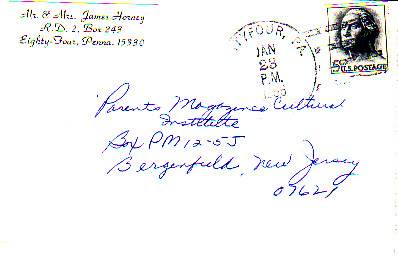 Mr. & Mrs. James Horney
R.D. 2, Box 249
Eighty-Four, Penna. 15330
TYFOUR, PA.
JAN
28
P.M.
U.S. POSTAGE
Parents Magazines Cultural
Institute
Box PM 12-5J
Bergenfield, New Jersey
07621